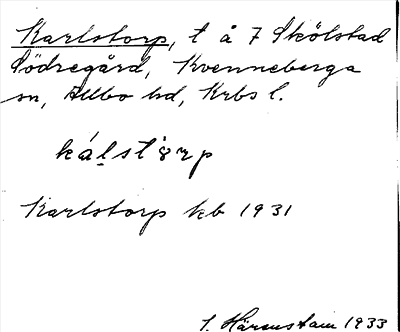 Karlstorp, t å 7 Skölstad
Södregård, Kvenneberga
sn, Allbo hd, Krbs l.
kálstòrp
Karlstorp kb 1931
J. Härenstam 1933